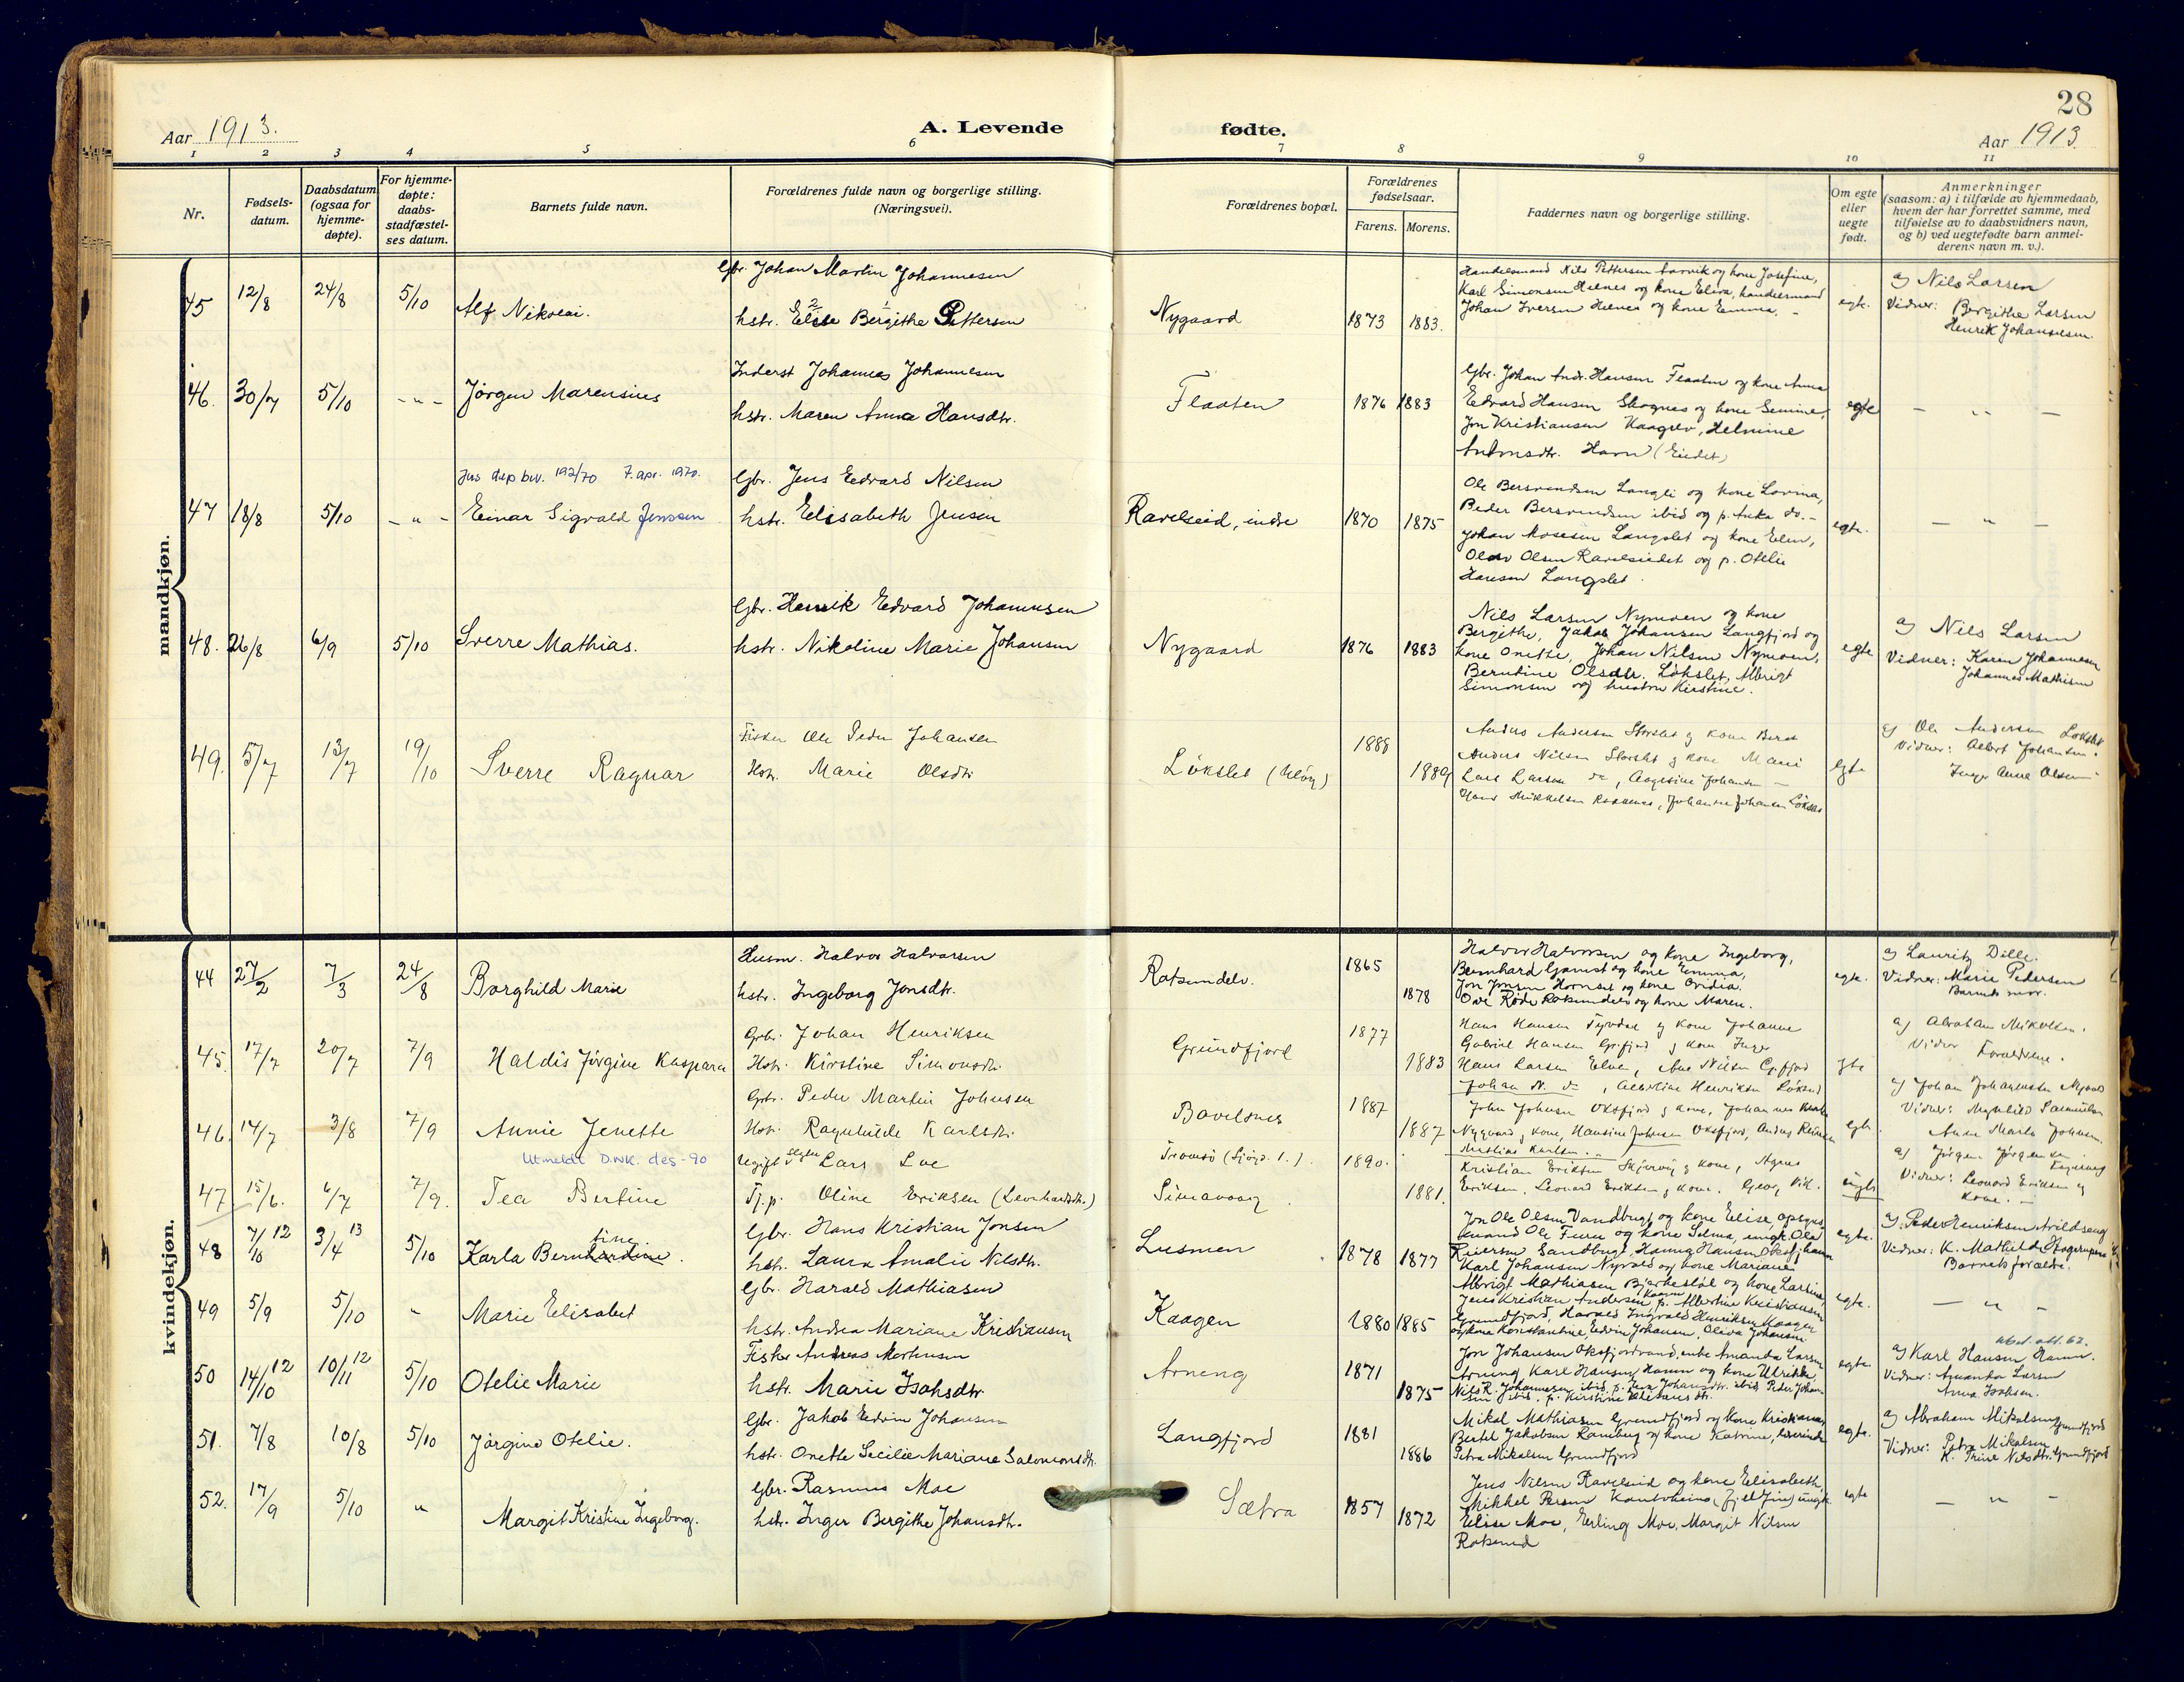 28
Aar 1913.
A. Levende fødte.
Aar 1913.
1 2 3 4 5 6 7 8 9 10 11
Nr.
Fødsels-
datum.
Daabsdatum
(ogsaa for
hjemme-
døpte).
For hjemme-
døpte:
daabs-
stadfæstel-
ses datum.
Barnets fulde navn.
Forældrenes fulde navn og borgerlige stilling.
(Næringsvei).
Forældrenes bopæl.
Forældrenes
fødselsaar.
Farens. Morens.
Faddernes navn og borgerlige stilling.
Om egte
eller
uegte
født.
Anmerkninger
(saasom: a) i tilfælde av hjemmedaab,
hvem der har forrettet samme, med
tilføielse av to daabsvidners navn,
og b) ved uegtefødte barn anmel-
derens navn m. v.).
mandkjøn.
45 12/8 24/8 5/10 Alf Nikolai.
Gbr. Johan Martin Johannesen
hstr. Elise Bergithe Pettersen
Nygaard 1873 1883.
Handelsmand Nils Pettersen og kone Josefine,
Karl Simonsen Hienes og kone Elina, handelsmand
Johan Iversen Hienes og kone Emma.
egte.
a) Nils Larsen
Vidner: Bergithe Larsen
Henrik Johannesen.
46. 30/7 5/10 - " - Jörgen Marensius
Inderst Johannes Johannesen
hstr. Maren Anna Hansdtr.
Flaaten 1876 1883
Gbr. Johan Andr. Hansen Flaaten og kone Anna
Edvard Hansen Skognes og kone Semine,
Jon Kristiansen Kaagelv, Helmine
Antonsdtr. Havn (Eidet)
egte - " -
Jus dep bev. 192/70 7. apr. 1970.
47 18/8 5/10 - " - Einar Sigvald Jenssen
Gbr. Jens Edvard Nilsen
hstr. Elisabeth Jensen
Ravelseid, indre 1870 1875
Ole Bersvendsen Langli og kone Lovina,
Peder Bersvendsen ibid og p. Anka do. -
Johan Mosesen Langslet og kone Elen,
Olav Olsen Ravelseidet og p. Otelie
Hansen Langslet.
egte. - " -
48. 26/8 6/9 5/10 Sverre Mathias.
Gbr. Henrik Edvard Johannesen
hstr. Nikoline Marie Johansen
Nygaard 1876 1883
Nils Larsen Nymoen og kone
Bergithe, Jakob Johansen Langfjord og
kone Onette, Johan Nilsen Nymoen,
Berntine Olsdtr. Lökslet, Albrigt
Simonsen og hustru Kirstine.
egte
a) Nils Larsen
Vidner: Karen Johannesen
Johannes Mathisen
49. 5/7 13/7 19/10 Sverre Ragnar
Fisker Ole Peder Johansen
Hstr. Marie Olsdtr
Lökslet (Uløy) 1888 1889
Anders Andersen Storslet og kone Berit
Anders Nilsen Storslet og kone Marie
Lars Larsen do, Aagesine Johansen -
Hans Mikkelsen, Johanne Johansen Lökslet
egte
a) Ole Andersen Lökslet
Vidner: Albert Johansen.
Inger Anna Olsen
kvindekjøn.
44 27/2 7/3 24/8 Borghild Marie
Husm. Halvor Halvorsen
hstr. Ingeborg Jonsdtr.
Rotsundelv. 1865 1878
Halvor Halvorsen og kone Ingeborg,
Bernhard Gamst og kone Emma,
Jon Jensen Hornset og kone Ovidia.
Ove Röde Rotsundelv og kone Maren.
egte.
a) Lauritz Dille.
Vidner: Marie Pedersen
Barnets mor.
45. 17/7 20/7 7/9 Haldis Jörgine Kaspara
Gbr. Johan Henriksen
Hstr. Kirstine Simonsdtr.
Grundfjord 1877 1883
Hans Hansen og kone Johanne
Gabriel Hansen Gr.fjord og kone Inger
Hans Larsen Elven, Ane Nilsen Gr.fjord
Johan N. do, Albertine Henriksen
gte
a) Abraham Mikalsen.
Vidner Forældrene.
46. 14/7 3/8 7/9 Annie Jenette
Gbr. Peder Martin Johnsen
Hstr. Ragnhilde Karlsdtr.
Bavelsnes 1887 1887
John Johnsen Oksfjord og kone, Johannes
Nygaard og kone, Hansine Johnsen Oksfjord, Anders
Kristine Karlsen.
egte.
a) Johan Johannesen
Vidner: Samuelsen
Anne Marla Johnsen.
Utmeldt D.N.K. des -90
47 15/6. 6/7 7/9. Tea Bertine
Ugift Lars Loe
Tj.p. Oline Eriksen (Leonhardsdtr.)
Tromsö (Sjögt. 1.) 1890.
Simavaag 1881.
Kristian Eriksen Skjervöy og kone, Agnes
Eriksen. Leonard Eriksen og kone. Georg Vik.
uegte
a) Jörgen Jörgensen
Vidner: Leonard Eriksen og
kone. -
48 7/10 12 3/4 13 5/10 Karla Bernhardine tine.
Gbr. Hans Kristian Jensen
hstr. Laura Amalie Nilsdtr.
Lusmen 1878 1877
Jon Ole Olsen Vandbugt og kone Elise, opsyns-
mand Ole Furu og kone Selma, ungk. Ola
Reiersen Sandbugt, Hanna Hansen Oksfjhamn
Karl Johansen Nyvold og kone Mariane
egte.
a) Peder Henriksen Arildseng
Vidner: K. Mathilde Hagerupsen
Barnets forældre.
49 5/9 5/10 - Marie Elisabet
Gbr. Harald Mathiasen
hstr. Andrea Mariane Kristiansen
Kaagen 1880 1885
Albrigt Mathiasen Bjerkestöl og kone Larsine,
Jens Kristian Andersen Kaagen, p. Albertine Kristiansen
Grundfjord, Harald Ingvald Henriksen Kaagen
og kone Konstantine, Edvin Johansen, Oleva Johansen.
egte. - " -
50 14/10 12 10/11 12 5/10 Otelie Marie
Fisker Andreas Mortensen
hstr. Marie Isaksdtr.
Arneng 1871 1875
Jon Johansen Oksfjordvand, enke Amanda Larsen
Arneng, Karl Hansen Hamn og kone Ulrikke,
Nils R. Johannesen ibid, p. Johansdtr. ibid, Peder Johan-
sen ibid, p. Kirstine
egte.
a) Karl Hansen Hamn.
Vidner: Amanda Larsen
Anna Isaksen.
51. 7/8 10/8 5/10 Jörgine Otelie.
Gbr. Jakob Edvin Johansen
hstr. Onette Secilie Mariane Salomonsdtr.
Langfjord 1881 1886
Mikal Mathiasen Grundfjord og kone Kristianna,
Bertel Jakobsen Ramebug og kone Katrine, lærerinde
Petra Mikalsen Grundfjord
egte.
a) Abraham Mikalsen Grundfjord
Vidner: Petra Mikalsen
K. Trine Nilsdtr. Grundfjord
52. 17/9 5/10 " Margit Kristine Ingeborg.
Gbr. Rasmus Moe
hstr. Inger Bergithe Johansdtr.
Sætra 1857 1872
Jens Nilsen Ravelseid og kone Elisabeth,
Mikkel Persen Kautokeino (fjelfin) ungk.
Elise Moe, Erling Moe, Margit Nilsen
Rotsund
egte - " -